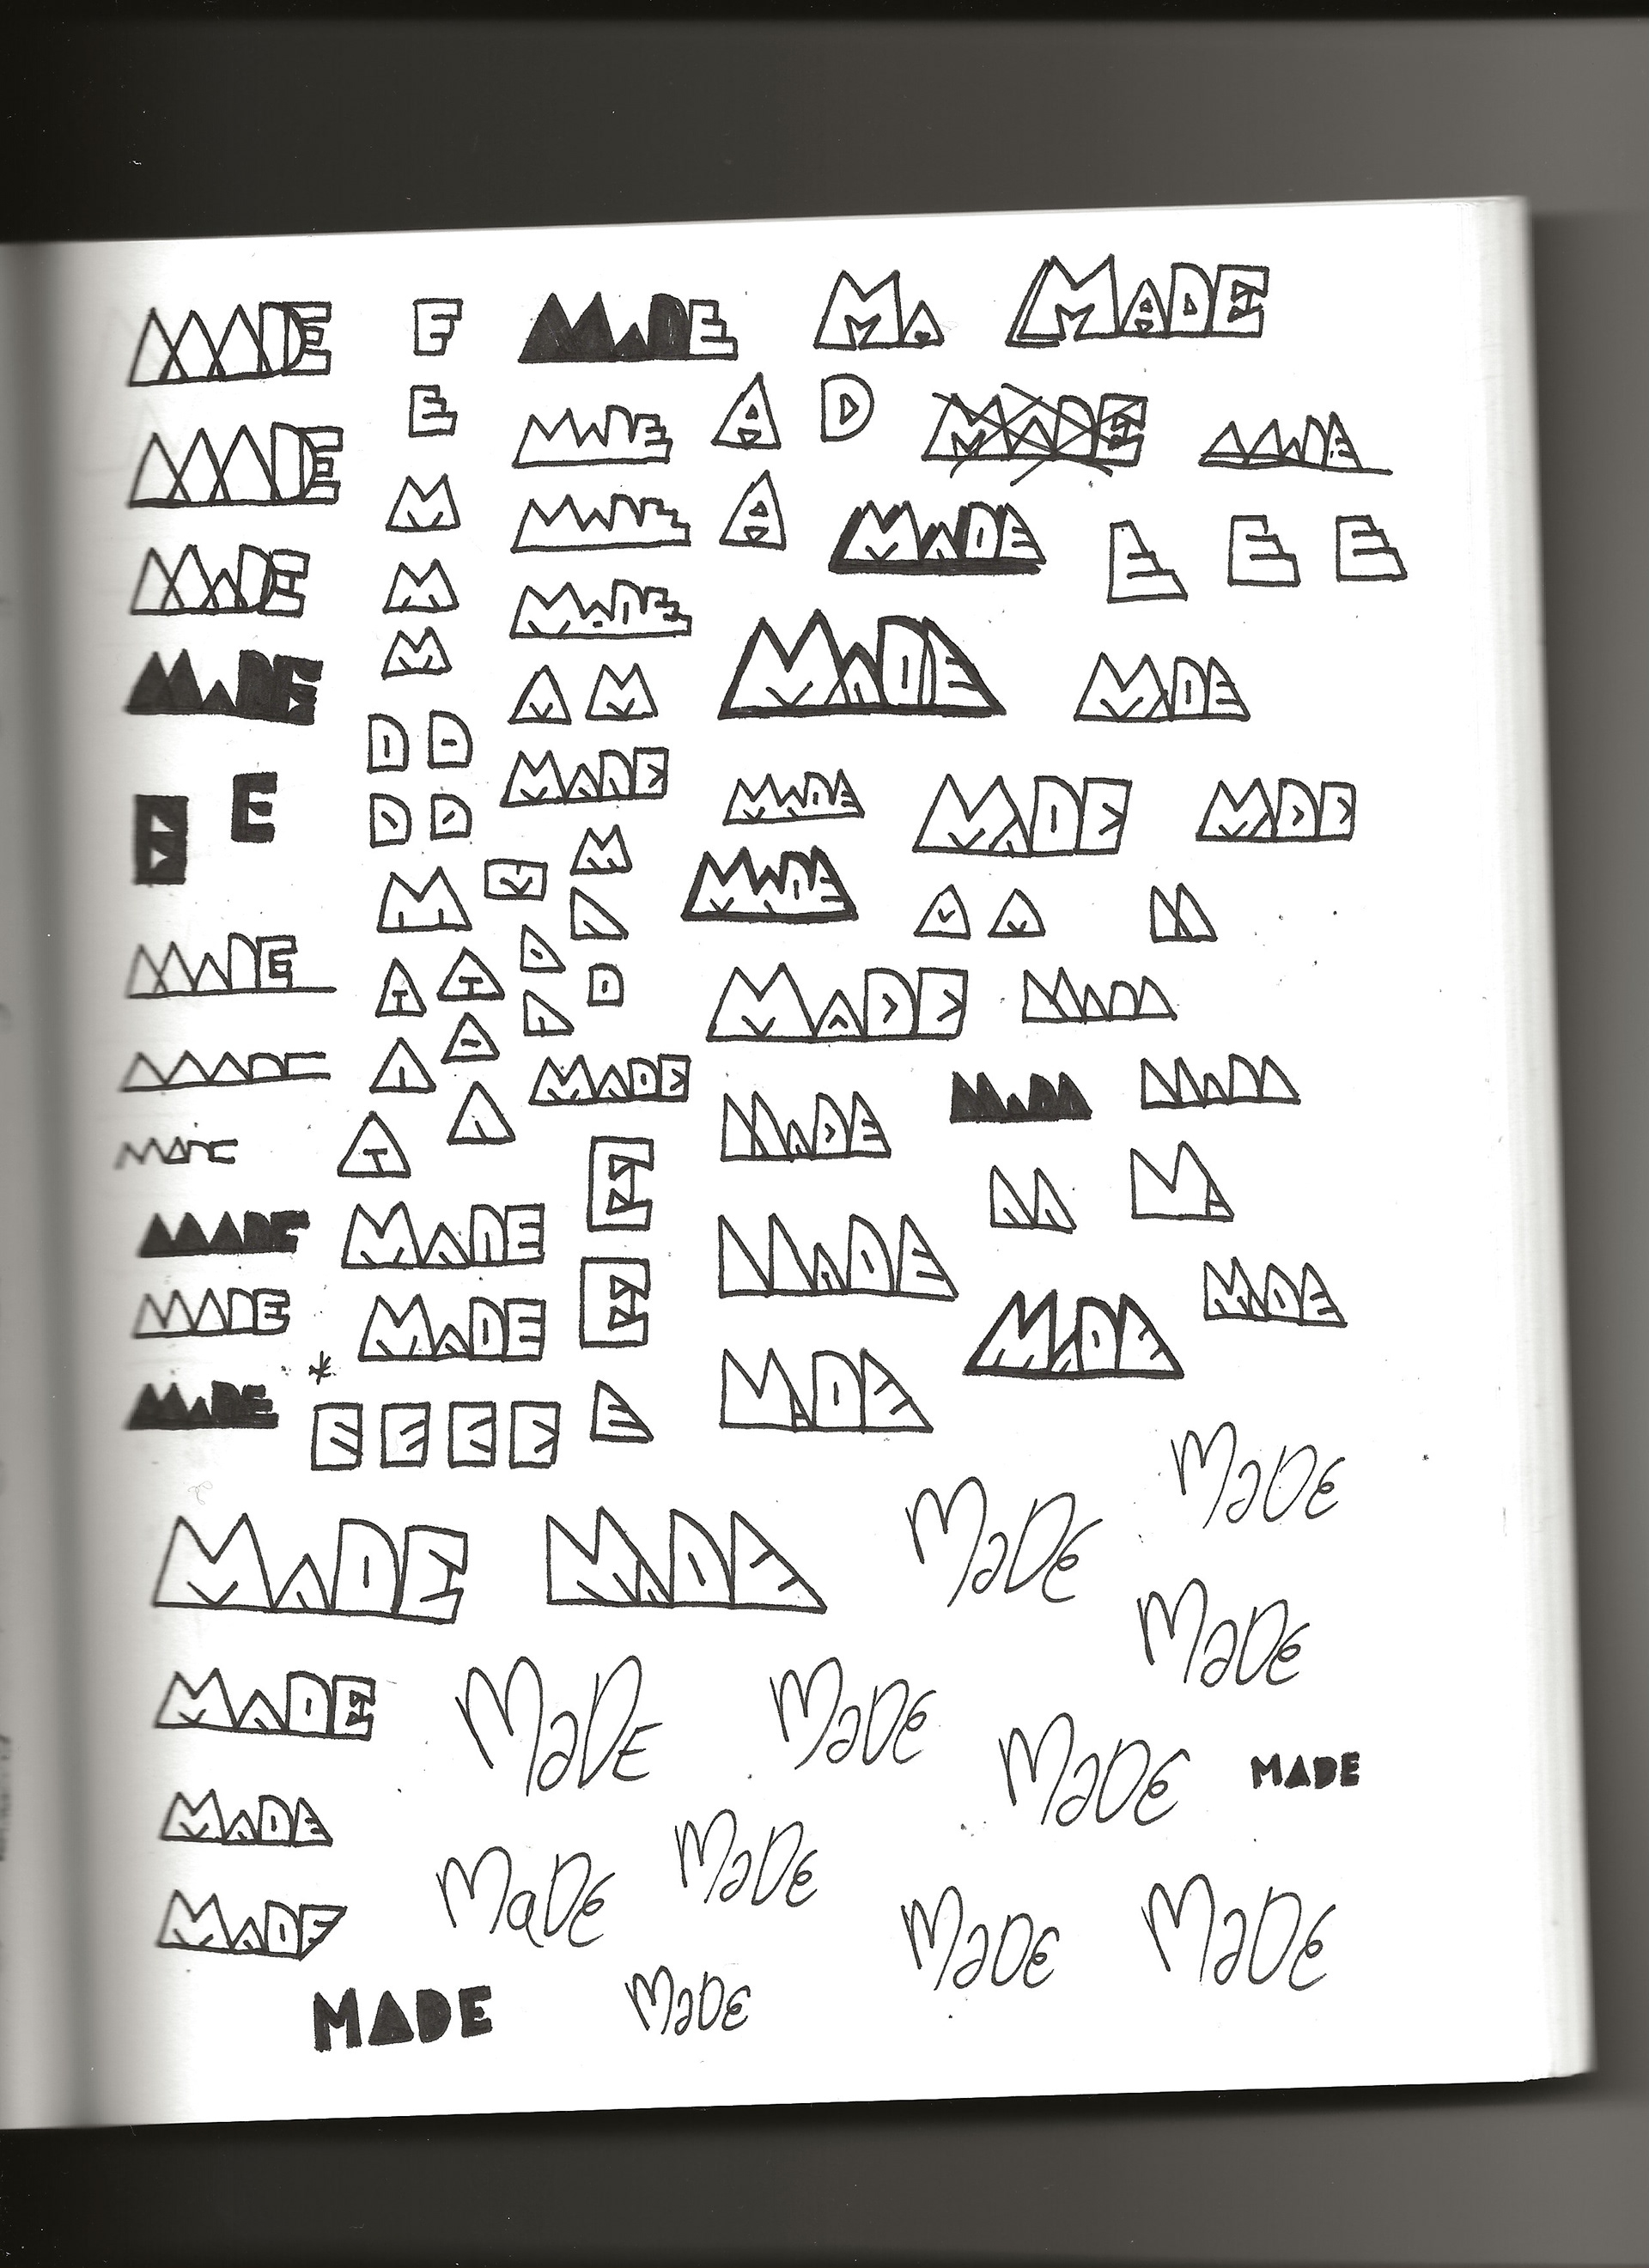 MADE E MADE MA MADE
MADE E MADE A D MADE MADE
M MADE A MADE E E E
MADE M MADE MADE MADE
MADE M A M
D D MADE MADE MADE MADE
E E D D M MADE
M M A A M
MADE A A D D MADE
A A A MADE
MADE A A MADE MADE
MADE A E M
MADE MADE MADE MADE
MADE MADE E MADE
MADE E E E E E MADE
MADE MADE MaDE MaDE
MaDE
MADE MaDE MaDE MaDE MADE
MADE MaDE MaDE
MADE MaDE MaDE
MADE MaDE